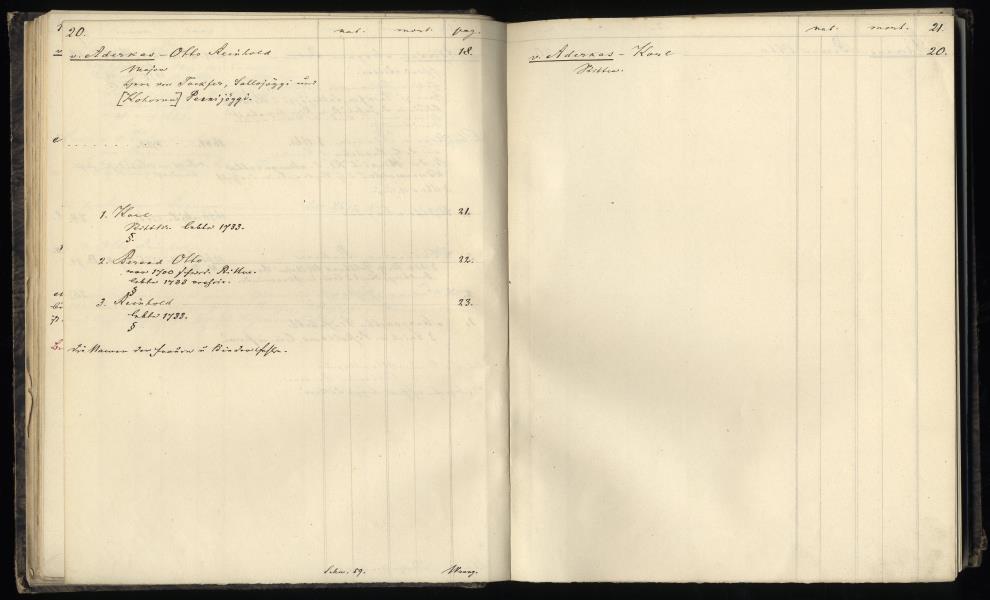 20. nat. mort. pag.
v. Aderkas - Otto Reinhold 18.
Major
Herr von Tackfer, Sallajöggi und
[Kohoma] Pernijöggi.
1. Karl 21.
Rittm. lebte 1733.
§.
2. Berend Otto 22.
war 1700 schwed. Rittm.
lebte 1733
§
3. Reinhold 23.
lebte 1733.
§
Die Namen der Frauen u Kinder fehlen.
Schw. 59. Wrang.
nat. mort. 21.
v. Aderkas - Karl 20.
Rittm.